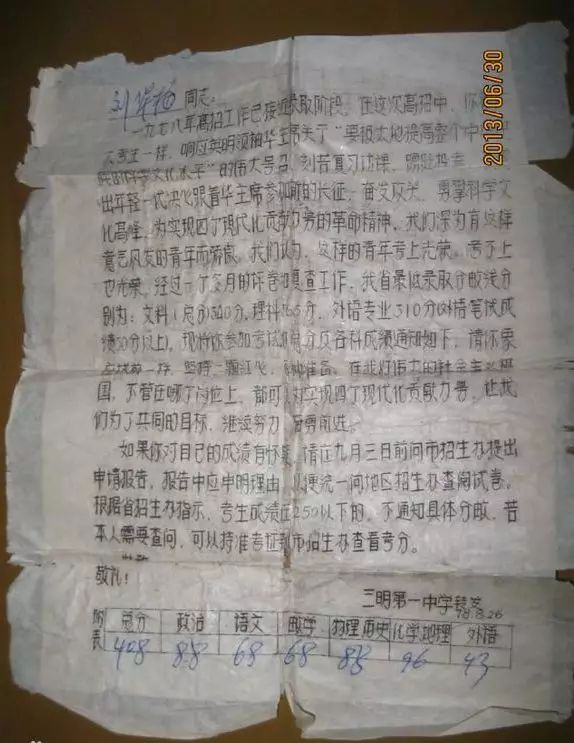 2013/06/30
同志:
一九七八年高招工作已接近录取阶段,在这次高招中,你
考生一样,响应英明领袖华主席关于"要极大地提高整个中
科学文化水平"的伟大号召,刻苦复习功课,踊跃报考,
出年轻一代决心跟着华主席参加新的长征,奋发攻关,勇攀科学文
化高峰,为实现四个现代化贡献力量的革命精神,我们深为有这样
意气风发的青年而骄傲。我们认为,这样的青年考上光荣,考不上
也光荣。经过一个多月的评卷和复查工作,我省最低录取分数线分
别为:文科(总分)340分,理科365分,外语专业310分(外语笔试成
绩50分以上)。现将你参加考试的总分及各科成绩通知如下,请你象
一样,坚持一颗红心,准备。在我们伟大的社会主义祖
国,不管在哪个岗位上,都可以对实现四个现代化贡献力量,让我
们为了共同的目标,继续努力,奋勇前进。
如果你对自己的成绩有怀疑,请在九月三日前向市招生办提出
申请报告,报告中应申明理由,以便统一向地区招生办查阅试卷。
根据省招生办指示,考生成绩在250以下的,不通知具体分数,若
本人需要查问,可以持准考证到市招生办查看考分。
敬礼!
三明第一中学转发
78.8.26
附表 总分 政治 语文 数学 物理历史 化学地理 外语
408 88 68 68 88 96 43